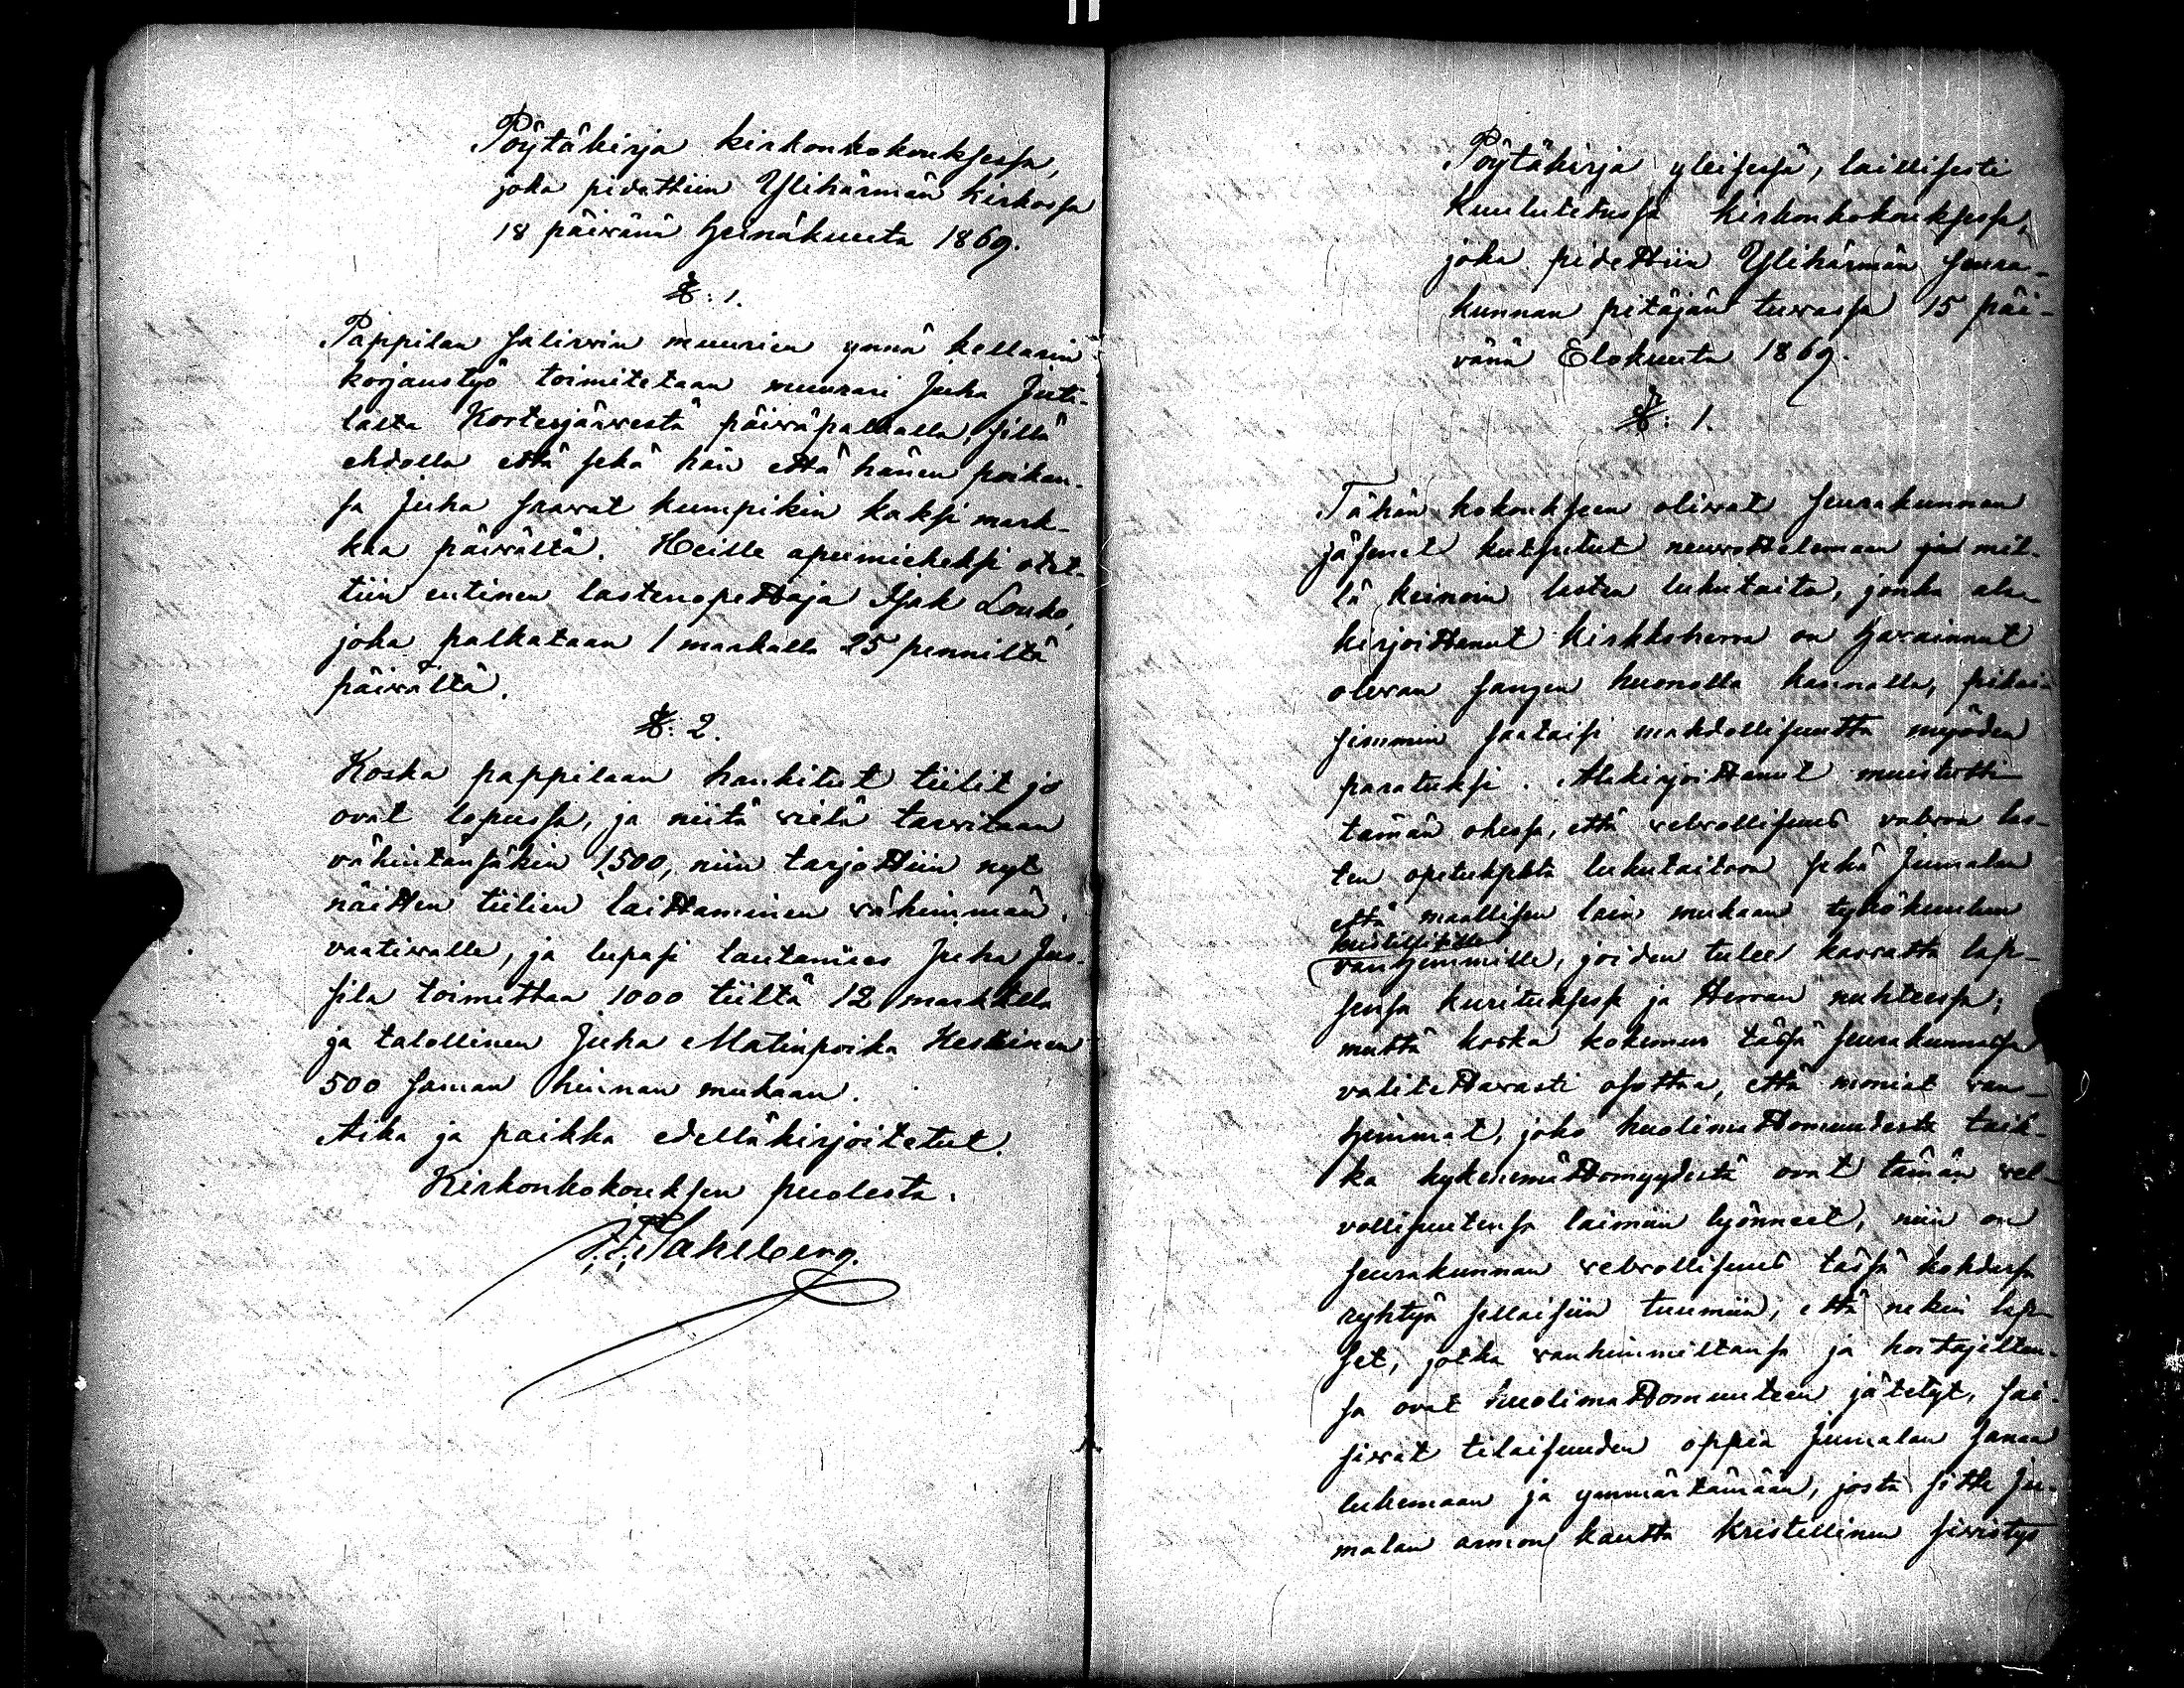 Pöytäkirja kirkonkokouksessa,
joka pidettiin Ylihärmän kirkossa
18 päivänä Heinäkuuta 1869.
§: 1.
Pappilan salirvin muurien ynnä kellarin
korjaustyö toimitetaan muurari Juha Juti-
lalta Kortesjärvestä päiväpalkalla, sillä
ehdolla että sekä hän että hänen poikan-
sa Juha saavat kumpikin kaksi mark-
kaa päivältä. Heille apumieheksi otet-
tiin entinen lastenopettaja Isak Louko,
joka palkataan 1 markalla 25 penniltä
päivältä.
§: 2.
Koska pappilaan hankitut tiilit jo
ovat lopussa, ja niitä vielä tarvitaan
vähintänsäkin 1,500, niin tarjottiin nyt
näitten tiilien laittaminen vähimmän
vaativalle, ja lupasi lautamies Juha Jus-
sila toimittaa 1000 tiiltä 12 markalla
ja talollinen Juha Matinpoika Keskinen
500 saman hinnan mukaan.
Aika ja paikka edelläkirjoitetut.
Kirkonkokouksen puolesta.
Sahlberg.
Pöytäkirja yleisessä, laillisesti
kuulutetussa kirkonkokouksessa,
joka pidettiin Ylihärmän seura-
kunnan pitäjän tuvassa 15 päi-
vänä Elokuuta 1869.
§: 1.
Tähän kokoukseen olivat seurakunnan
jäsenet kutsutut neuvottelemaan ja mil-
lä keinoin lasten lukutaito, jonka ala-
kirjoittanut kirkkoherra on havainnut
olevan sangen huonolla kannalla, pikai-
simmin saataisi mahdollisuutta myöden
paratuksi. Alakirjoittanut muistutti
tämän ohessa, että velvollisuus valvoa las-
ten opetuksesta lukutaitoon sekä Jumalan
että maallisen lain mukaan tykökuuluu
kristillisille
vanhemmille, joiden tulee kasvattaa lap-
sensa kurituksessa ja Herran nuhteessa;
mutta koska kokemus tässä seurakunnassa
valitettavasti osottaa, että moniat van-
hemmat, joko huolimattomuudesta taik-
ka kykenemättömyydestä ovat tämän vel-
vollisuutensa laimiin lyönneet, niin on
seurakunnan velvollisuus tässä kohdassa
ryhtyä sellaisiin tuumiin, että nekin lap-
set, jotka vanhimmiltansa ja hoitajilten-
sa ovat huolimattomuuteen jätetyt, sai-
sivat tilaisuuden oppia Jumalan sanaa
lukemaan ja ymmärtämään, josta sitte Ju-
malan armon kautta kristellinen sivistys